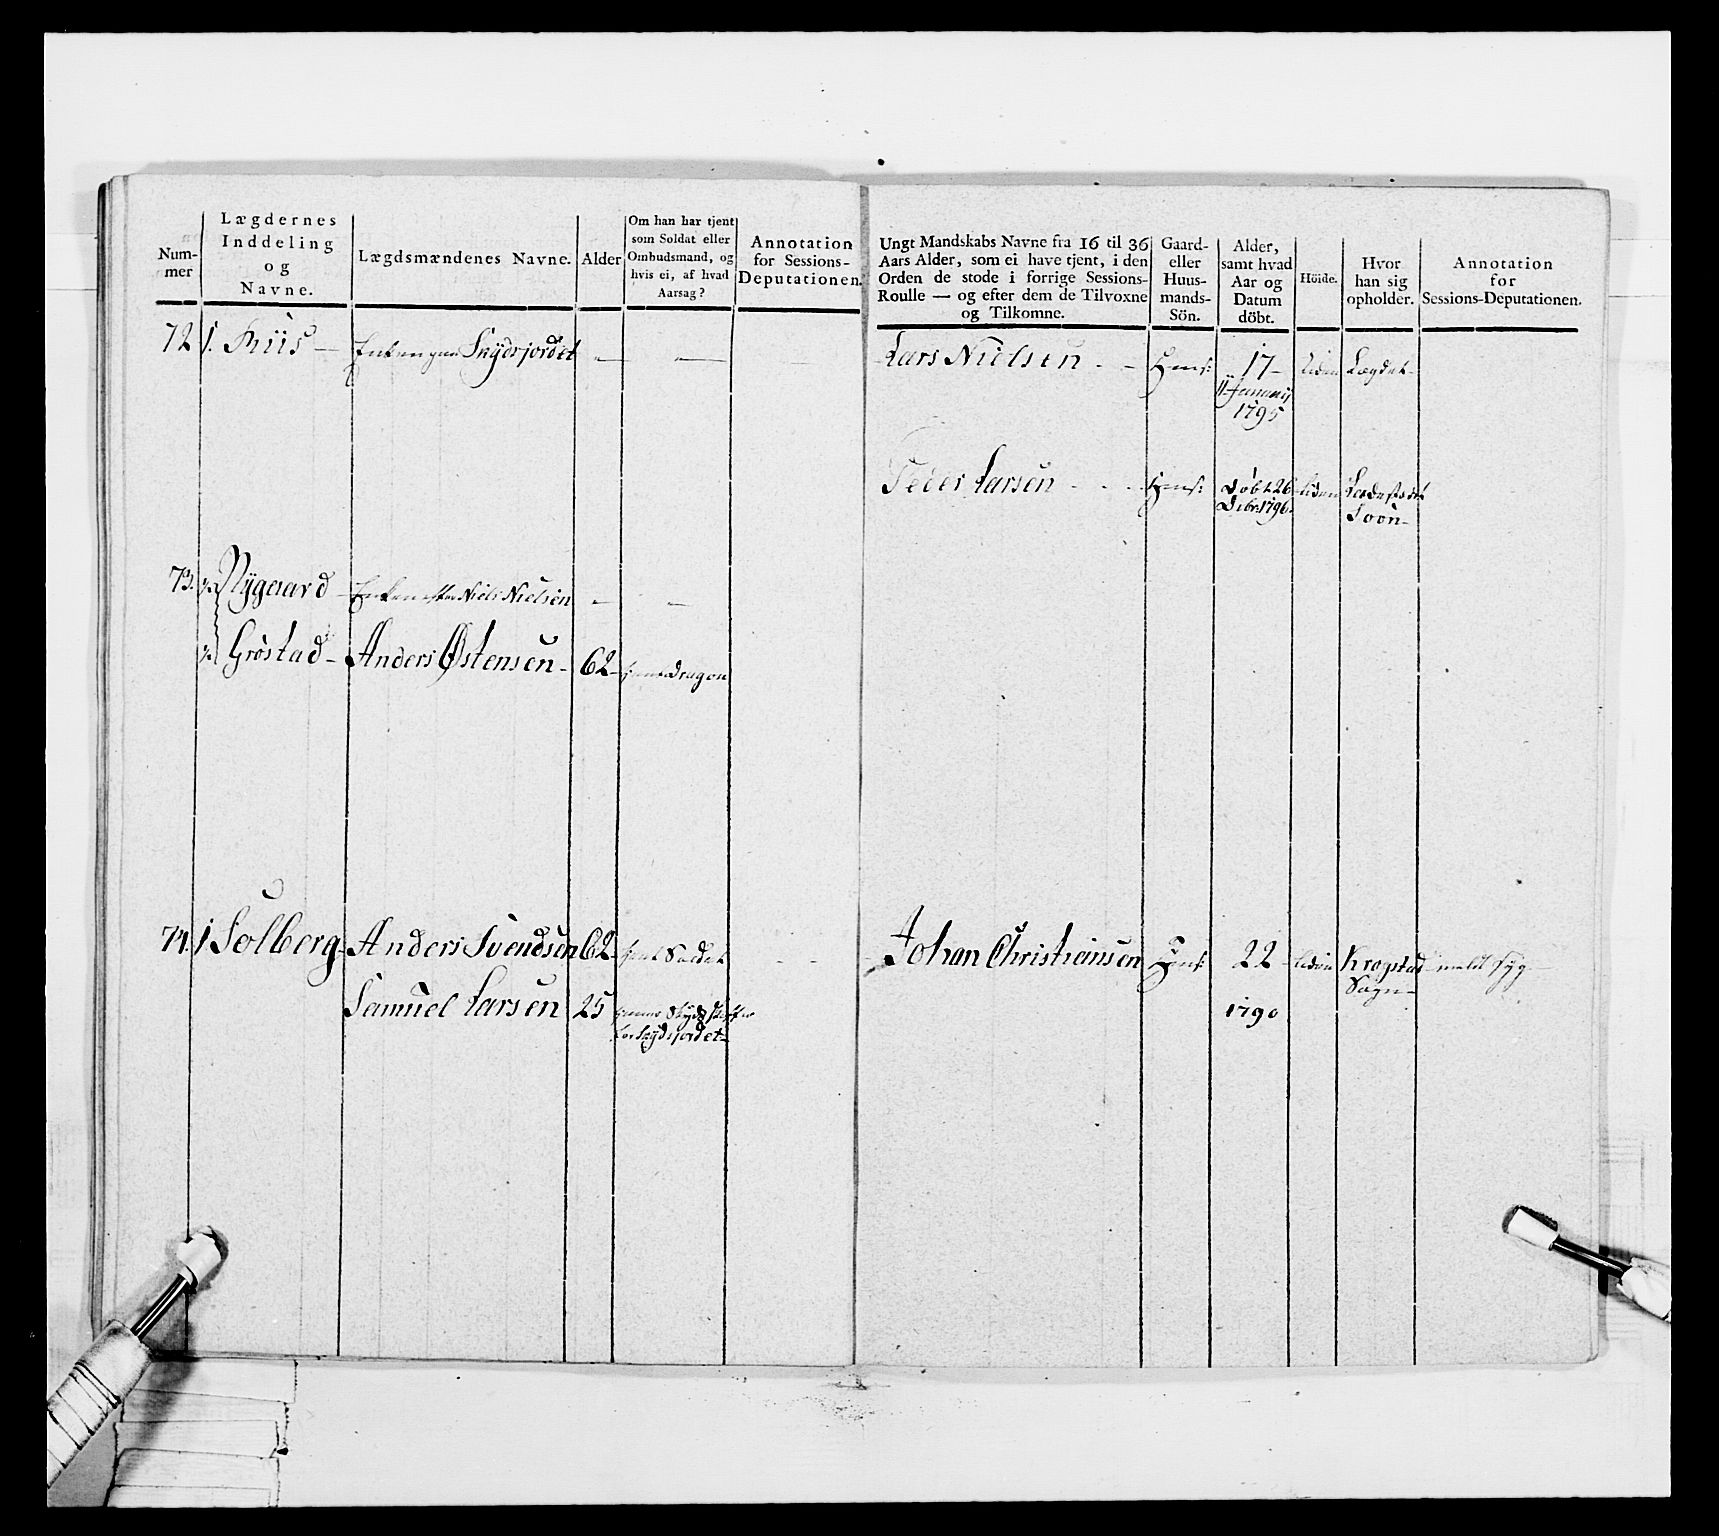 Num-
mer
Lægdernes
Inddeling
og
Navne.
Lægdsmændenes Navne.
Alder
Om han har tjent
som Soldat eller
Ombudsmand, og
hvis ei, af hvad
Aarsag?
Annotation
for Sessions-
Deputationen.
Ungt Mandskabs Navne fra 16 til 36
Aars Alder, som ei have tjent, i den
Orden de stode i forrige Sessions-
Roulle — og efter dem de Tilvoxne
og Tilkomne.
Gaard-
eller
Huus-
mands-
Sön.
Alder,
samt hvad
Aar og
Datum
döbt.
Höide.
Hvor
han sig
opholder.
Annotation
for
Sessions-Deputationen.
72 1. Riis — Enken paa Skydsjordet — —
Lars Nielsen - - 17 - liden Lægdet-
11 Januarij
1795
Peder Larsen - - - Døbt 26 liden
Dcbr. 1796.
Soon-
73. ½ Nygaard - Enken efter Niels Nielsen - -
½ Grøstad - Anders Østensen - 62 - Dragon
74. 1 Solberg - Anders Svendsen 62 -
Johan Christiansen 22 - liden Krogstad meldt syg -
Sogn-
Samuel Larsen 25
1790
for Skydsjordet -